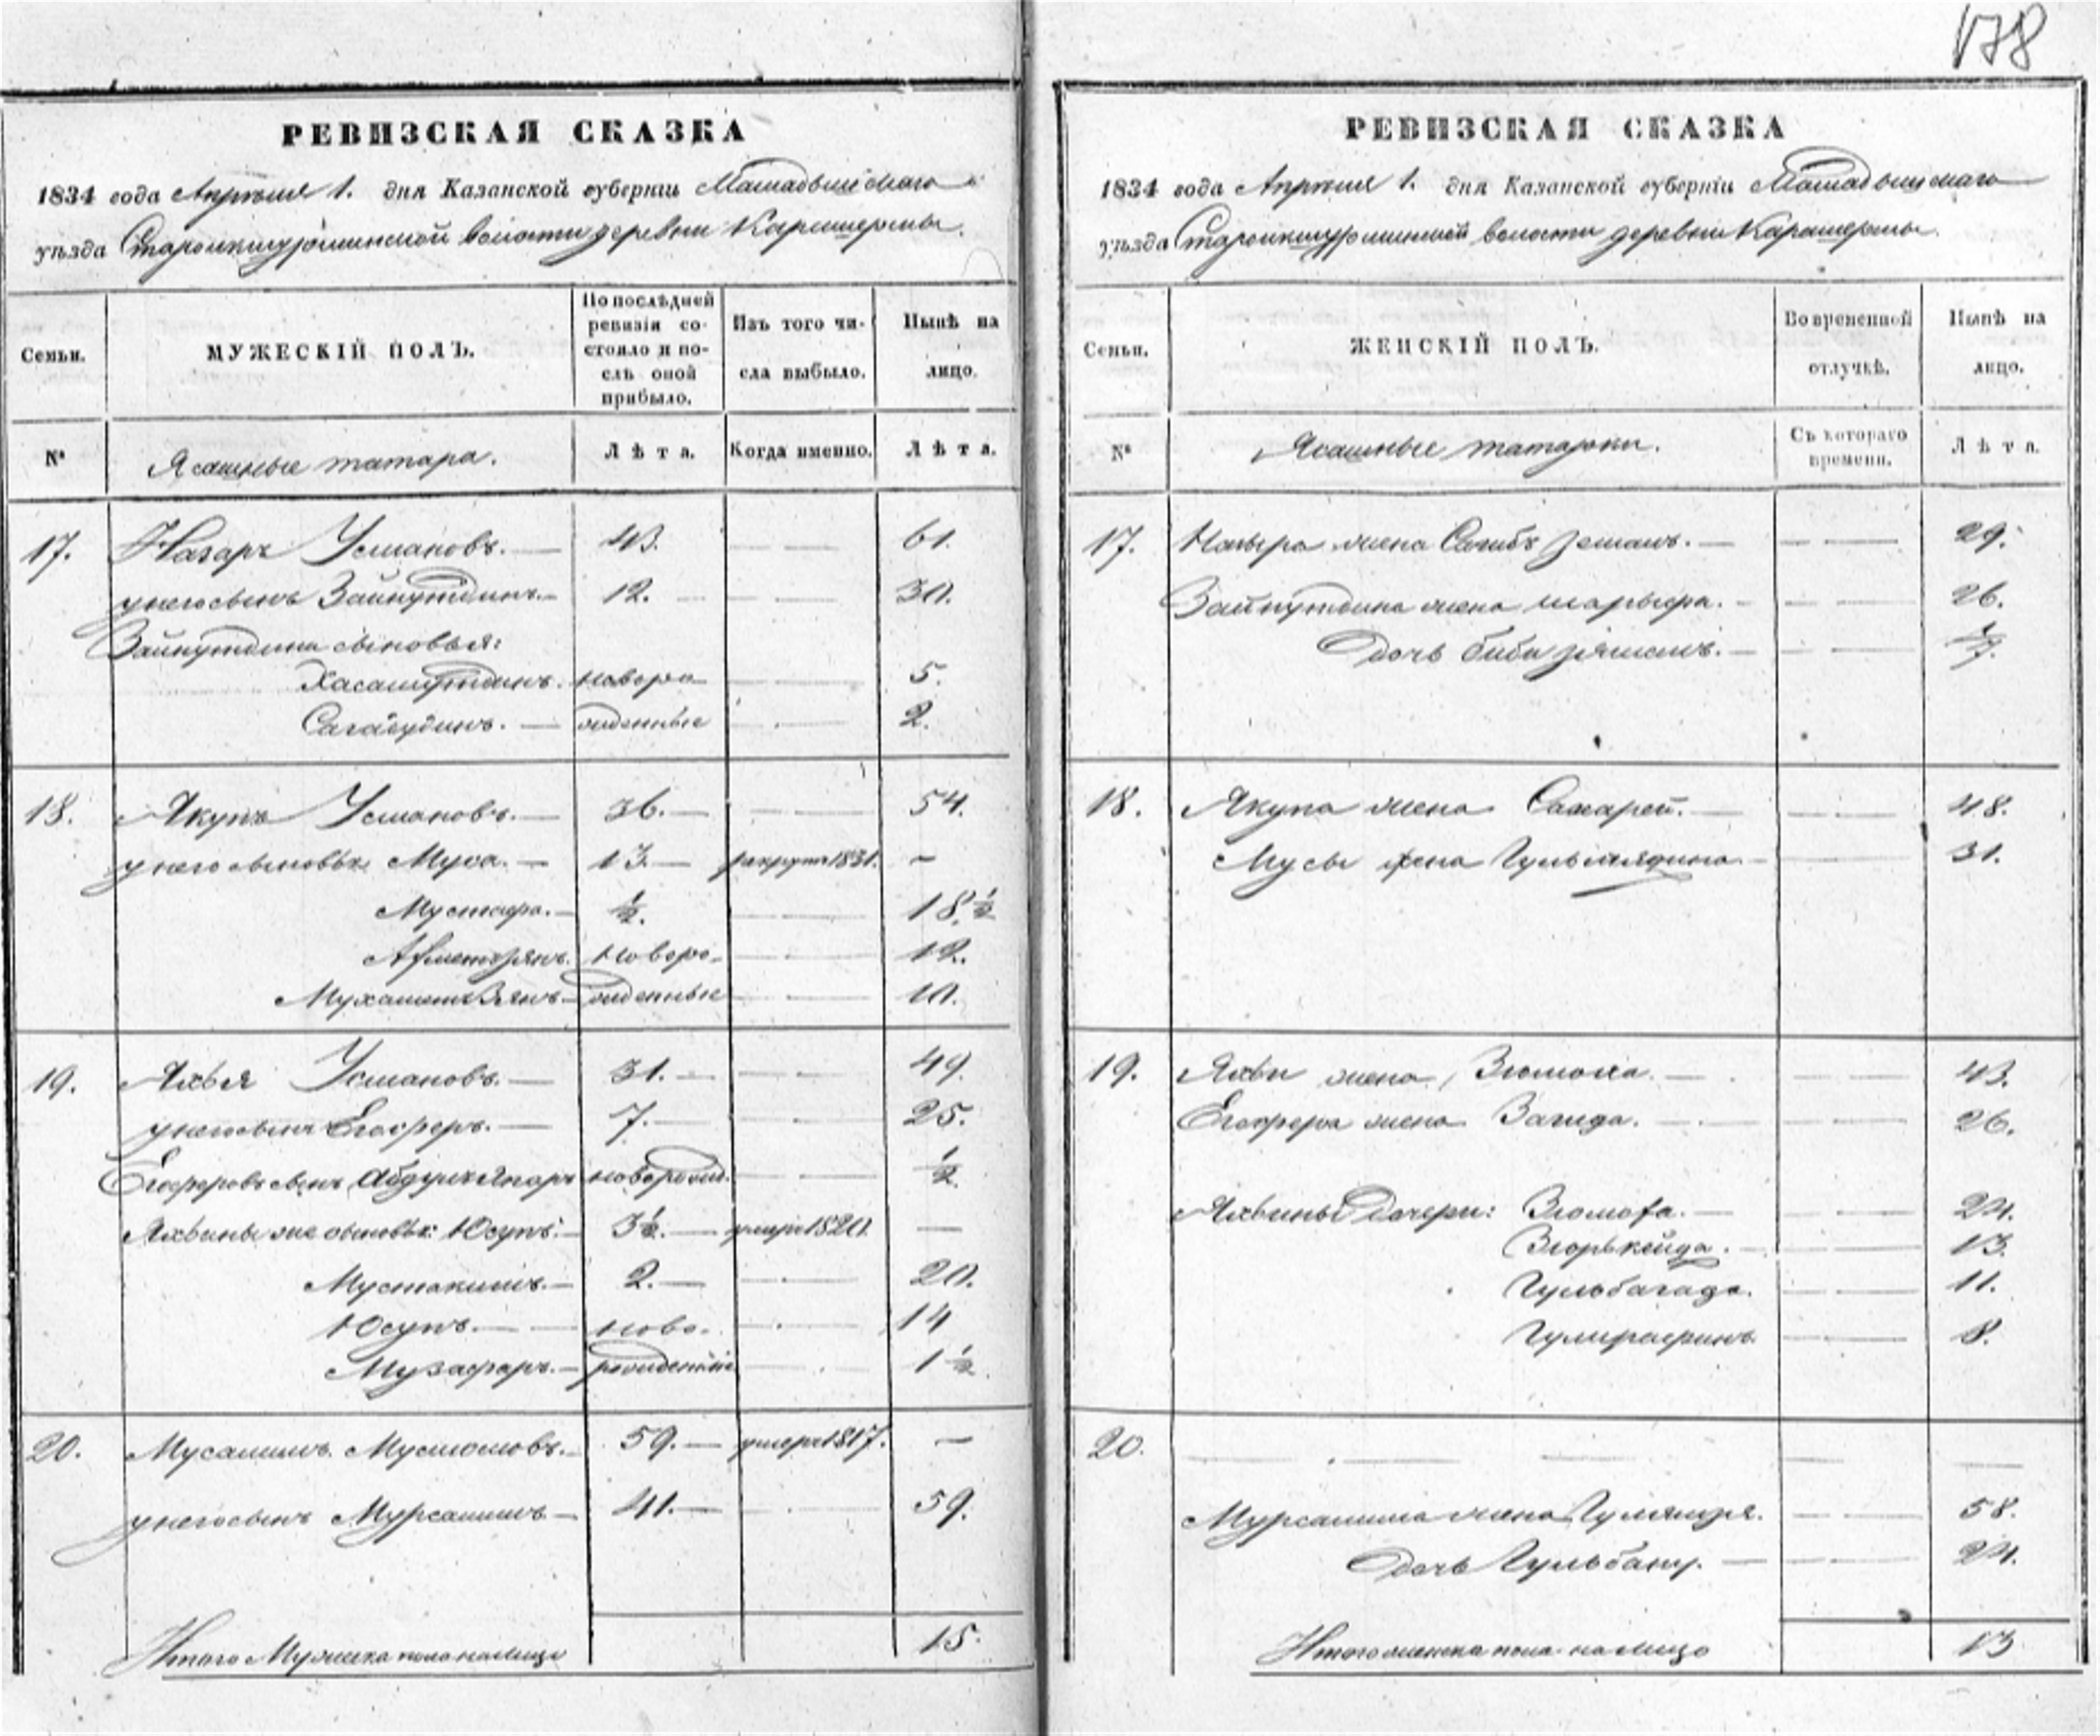 178
РЕВИЗСКАЯ СКАЗКА
1834 года Апреля 1. дня Казанской губерніи Мамадышскаго
уѣзда волости деревни
Семьи.
МУЖЕСКІЙ ПОЛЪ.
По послѣдней ревизіи состояло и послѣ оной прибыло.
Изъ того числа выбыло.
Нынѣ на лицо.
№
Ясашные татара.
Лѣта.
Когда именно.
Лѣта.
17. Назаръ Усмановъ. — 43. — 61.
у него сынъ Зайнутдинъ. — 12. — 30.
Зайнутдина сыновья:
новоро- — 5.
— жденные — 2.
18. Якупъ Усмановъ. — 36. — 54.
у него сыновья: Муса. — 13. — рекрутъ 1831. —
Мустафа. — ½. — 18.½
Ахметзянъ. новоро- — 12.
Мухаметзянъ — жденные — 10.
19. Яхья Усмановъ. — 31. — 49.
у него сынъ Егоферъ. — 7. — 25.
Егоферовъ сынъ новорожд. — ½
Яхьины же сыновья: Юсупъ. — 3½. — умеръ 1820. —
Мустакимъ. — 2. — 20.
Юсупъ. — ново- — 14
Музафаръ. — рожденные — 1½
20. — 59. — умеръ 1817. —
у него сынъ Мурсалимъ — 41. — 59.
Итого Мужеска пола на лицо 15.
РЕВИЗСКАЯ СКАЗКА
1834 года Апреля 1. дня Казанской губерніи Мамадышскаго
уѣзда волости деревни
Семьи.
ЖЕНСКІЙ ПОЛЪ.
Во временной отлучкѣ.
Нынѣ на лицо.
№
Ясашные татарки.
Съ котораго времени.
Лѣта.
17. жена — 29.
Зайнутдина жена — 26.
Дочь — ½.
18. Якупа жена — 48.
Мусы жена — 31.
19. Яхьи жена — 43.
Егофера жена Загида. — 26.
Яхьины Дочери: — 24.
— 13.
— 11.
— 8.
20. — —
Мурсалима жена — 58.
Дочь Гульбану. — 24.
Итого женска пола на лицо 13